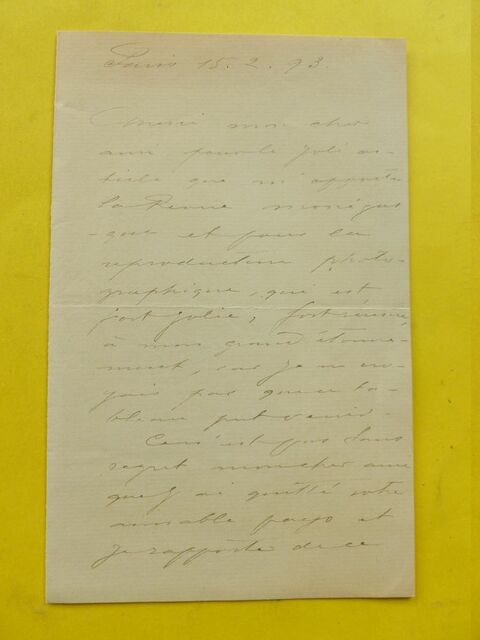 Paris 15. 2. 93.
Merci mon cher
ami pour le joli ar-
ticle que m'apporte
la Revue monégas
-que et pour la
reproduction photo-
graphique, qui est
fort jolie, fort réussie
à mon grand étonne-
ment, car je ne cro-
yais pas que ce ta-
bleau put venir.
Ce n'est pas sans
regret mon cher ami
que j'ai quitté votre
aimable pays et
je rapporte de ce